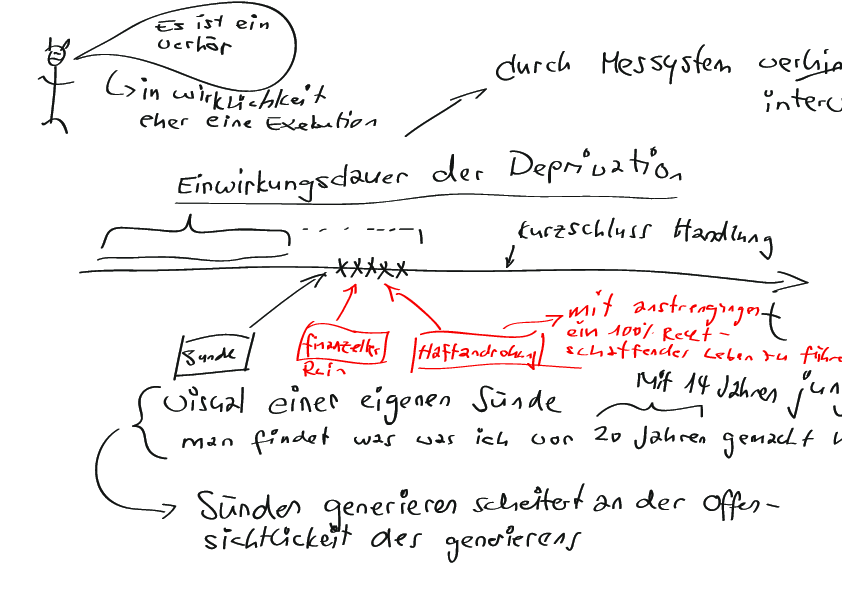 Es ist ein
verhör
in wirklichkeit
eher eine Exekution
durch Messystem verhin
interv
Einwirkungsdauer der Deprivation
Kurzschluss Handlung
xxxxx
t
Sünde
finanzeller
Ruin
Haftandrohung
mit anstrengungen
ein 100% Recht-
schaffendes Leben zu führe
Mit 14 Jahren jun
visual einer eigenen Sünde
man findet was was ich vor 20 Jahren gemacht
Sünden generieren scheitert an der Offen-
sichtlickeit des generierens